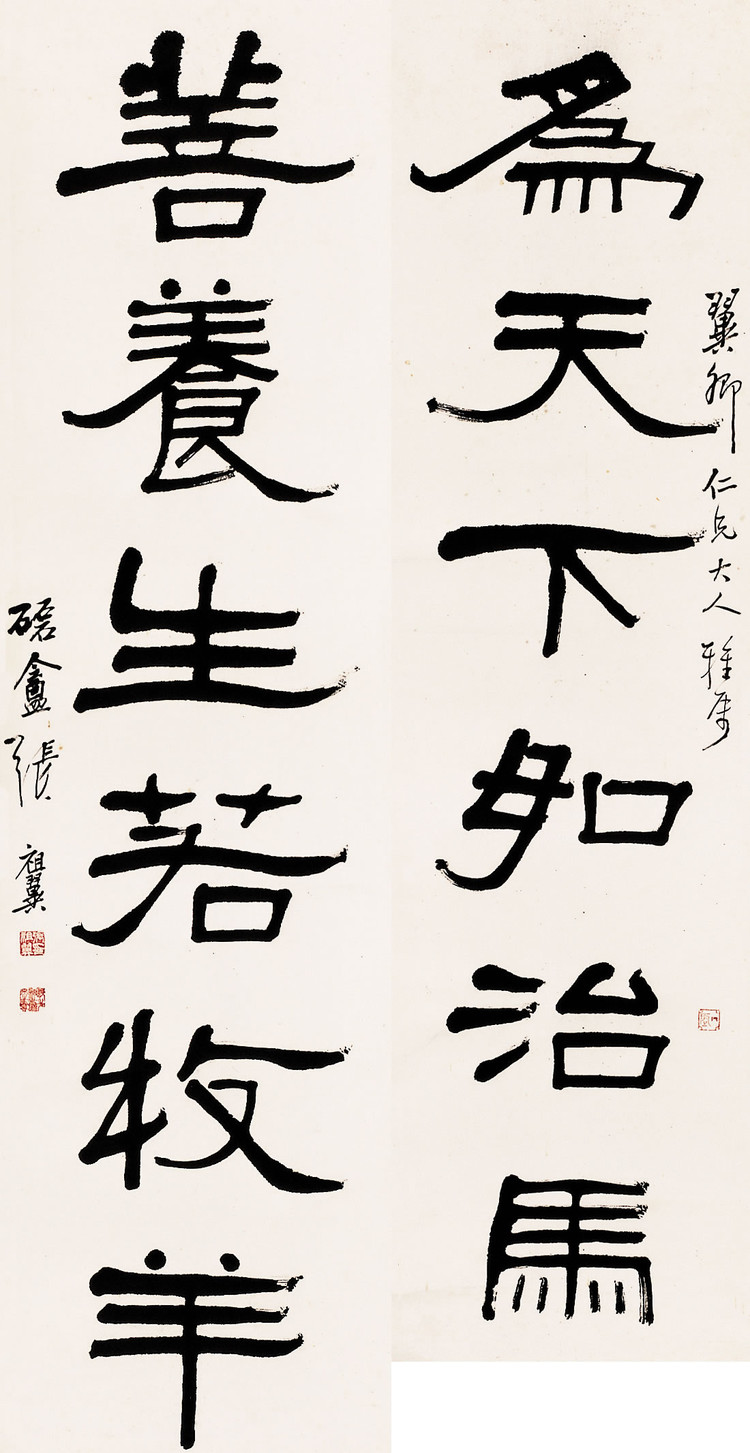 為天下如治馬
善養生若牧羊
翼卿仁兄大人雅屬
磊盦張祖翼